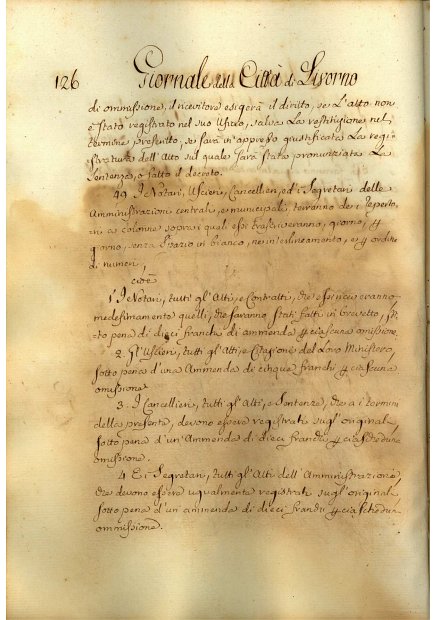 126 Giornale della Città di Livorno
di ommissione, il ricevitore esigerà il diritto, se l'atto non
è stato registrato nel suo Ufizio, salva la restituzione nel
termine prescritto, se sarà in appresso giustificata la regi=
stratura dell'Atto sul quale sarà stata pronunziata la
sentenza, o fatto il decreto.
49 I Notari, Uscieri, Cancellieri, ed i Segretari delle
Amministrazioni centrali, e municipali terranno dei Reperto,
rj a colonne sopra i quali essi trascriveranno, giorno, per
giorno, senza spazio in bianco, nè interlineamento, e per ordine
di numeri,
cioè
1. I Notari, tutti gl'Atti, e Contratti, che
medesimamente quelli, che saranno stati fatti in brevetto, sot
to pena di dieci franchi di ammenda per ciascuna omissione.
2. Gl'Uscieri, tutti gl'Atti, e Citazione del Loro Ministero,
sotto pena d'una Ammenda di cinque franchi per ciascuna
omissione
3. I Cancellieri, tutti gl'Atti, e Sentenze, che a i termini
della presente, devono essere registrati sugl'original
sotto pena d'un'Ammenda di dieci franchi per ciascheduna
omissione.
4 E i Segretari, tutti gl'Atti dell'Amministrazione,
che devono essere ugualmente registrati sugl'original
sotto pena d'un ammenda di dieci franchi per ciaschedun
ommissione.